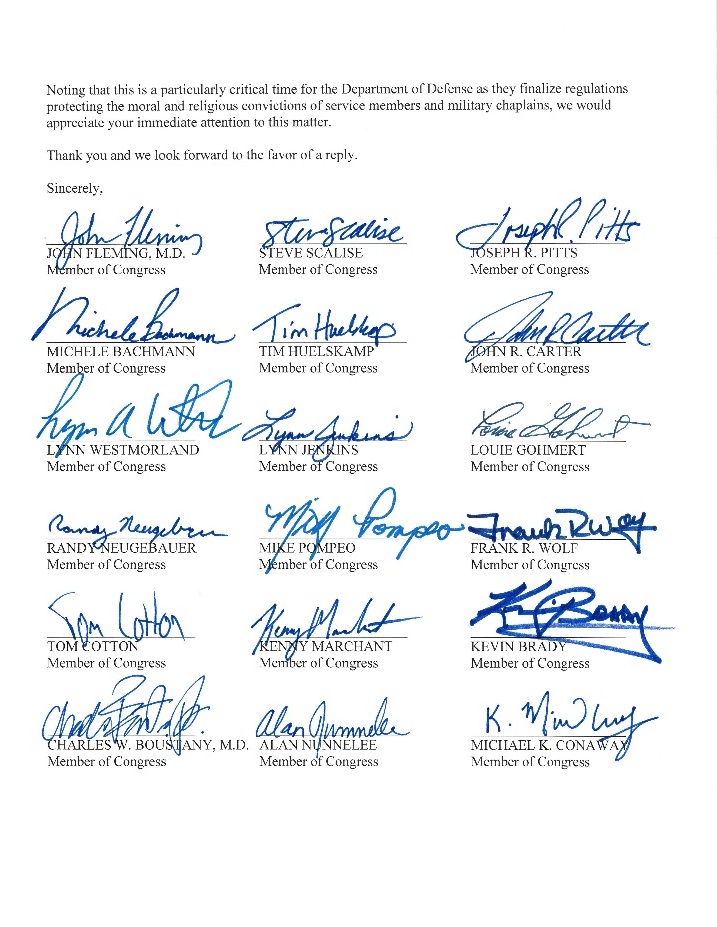 Noting that this is a particularly critical time for the Department of Defense as they finalize regulations
protecting the moral and religious convictions of service members and military chaplains, we would
appreciate your immediate attention to this matter.
Thank you and we look forward to the favor of a reply.
Sincerely,
John Fleming Steve Scalise Joseph R. Pitts
JOHN FLEMING, M.D. STEVE SCALISE JOSEPH R. PITTS
Member of Congress Member of Congress Member of Congress
Michele Bachmann Tim Huelskamp John R Carter
MICHELE BACHMANN TIM HUELSKAMP JOHN R. CARTER
Member of Congress Member of Congress Member of Congress
Lynn A Lynn Jenkins Louie Gohmert
LYNN WESTMORLAND LYNN JENKINS LOUIE GOHMERT
Member of Congress Member of Congress Member of Congress
Randy Neugebauer Mike Pompeo Frank R Wolf
RANDY NEUGEBAUER MIKE POMPEO FRANK R. WOLF
Member of Congress Member of Congress Member of Congress
Tom Cotton Kenny Marchant Brady
TOM COTTON KENNY MARCHANT KEVIN BRADY
Member of Congress Member of Congress Member of Congress
Alan Nunnelee K.
CHARLES W. BOUSTANY, M.D. ALAN NUNNELEE MICHAEL K. CONAWAY
Member of Congress Member of Congress Member of Congress